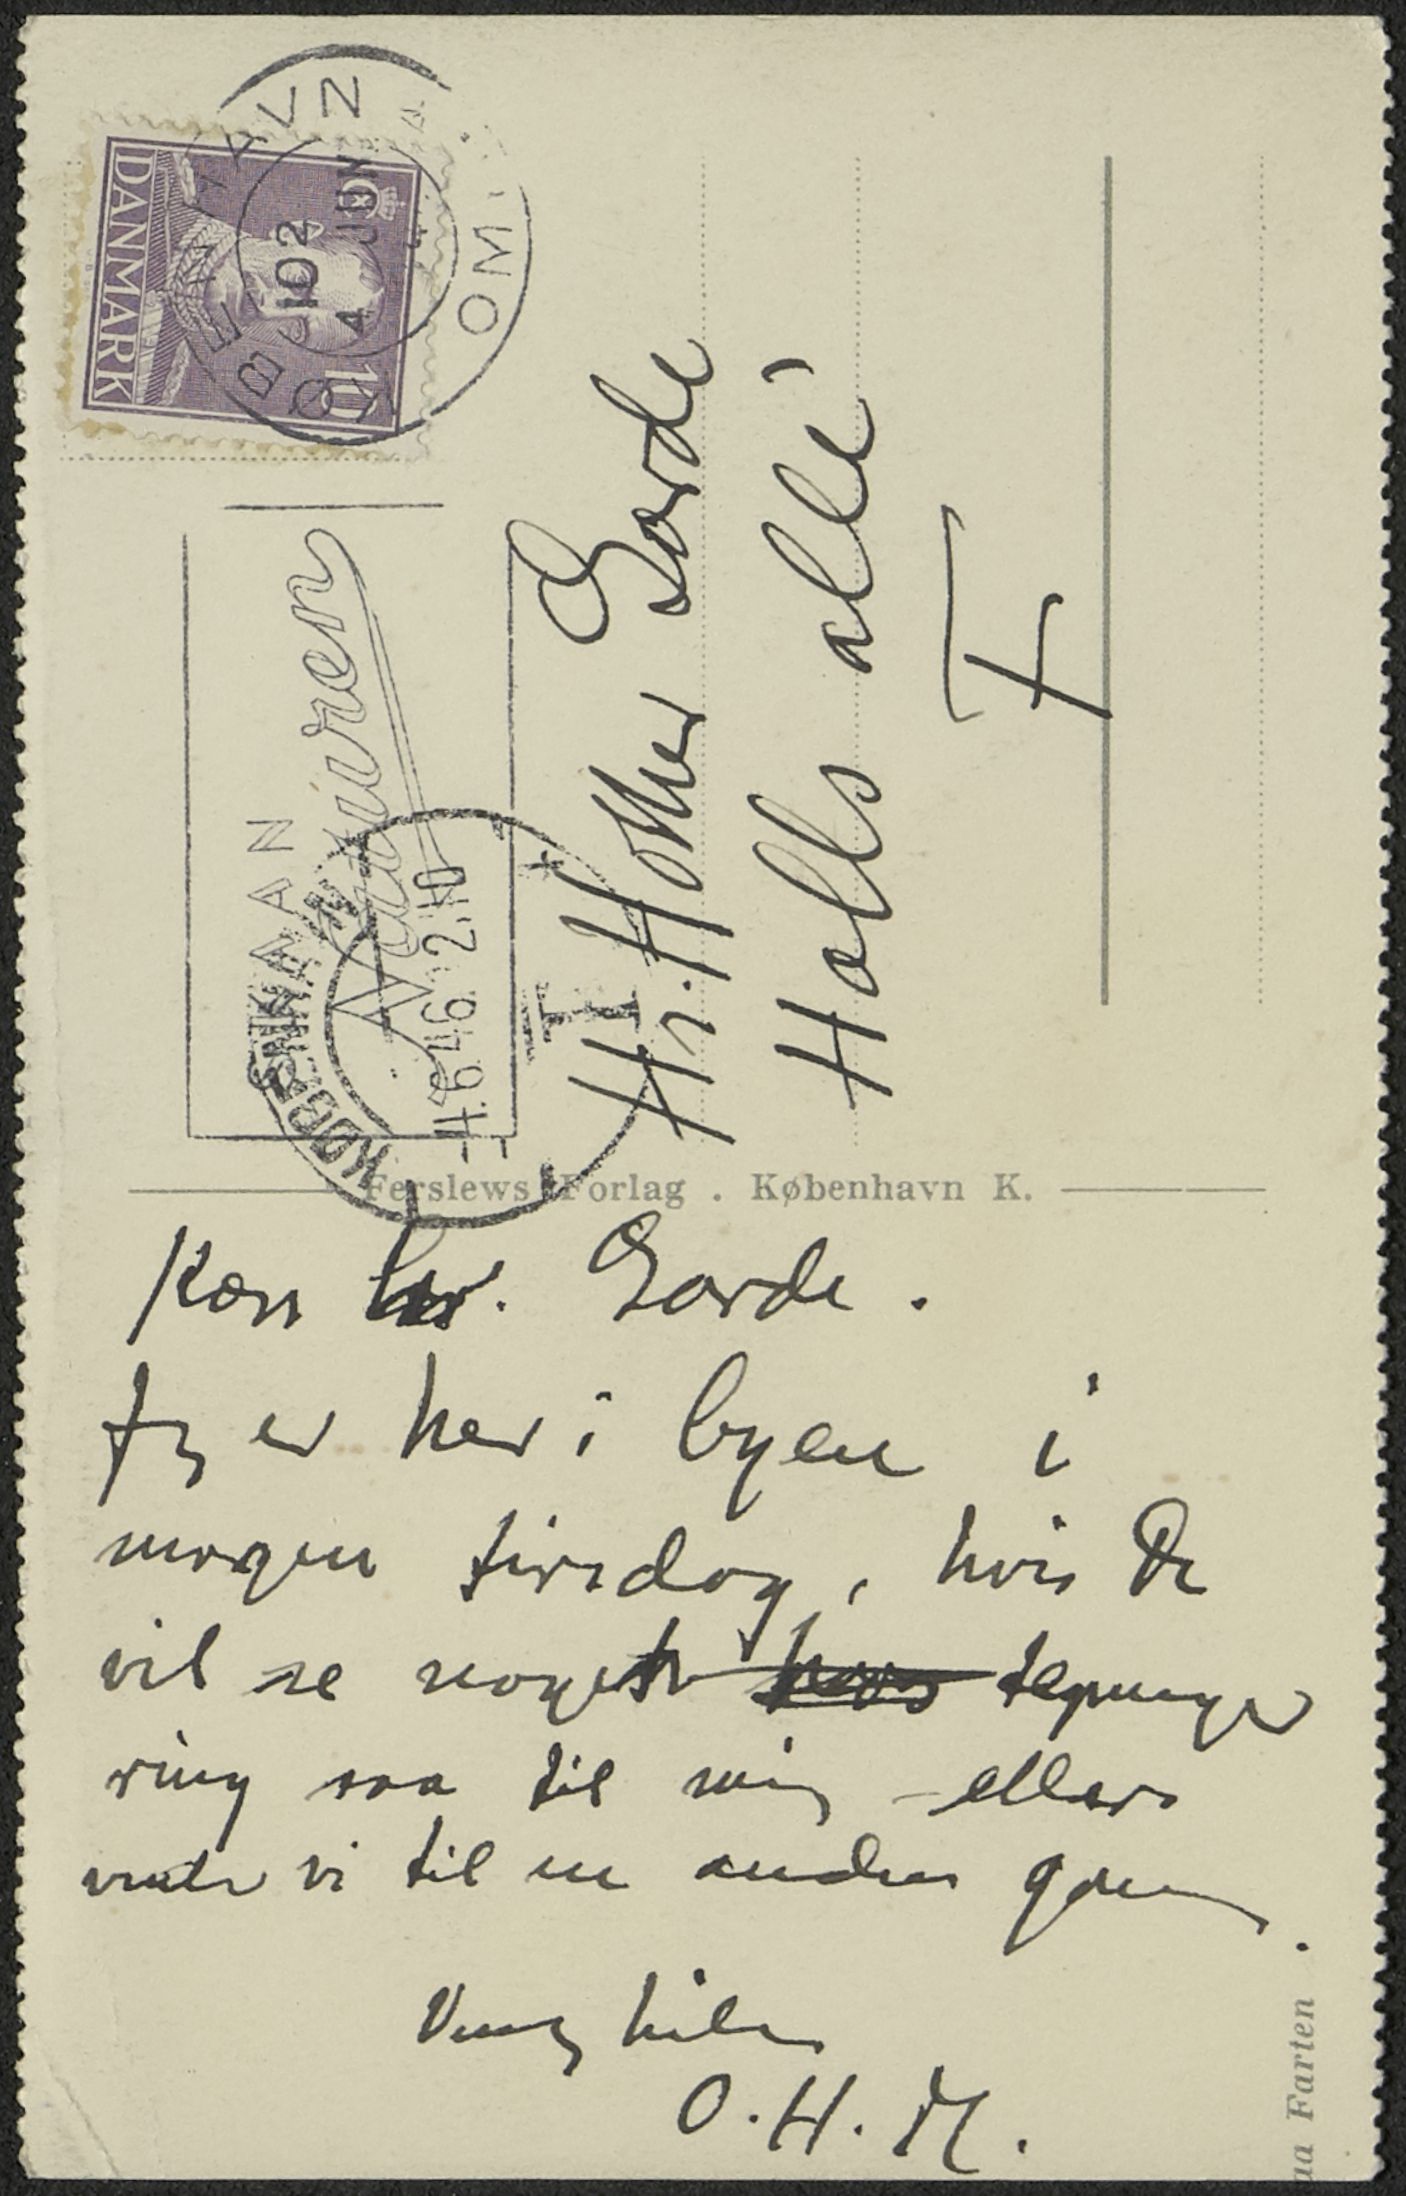 DANMARK
10
KØBENHAVN
OM
102
4 JUN
SKAAN
Naturen
KØBENHAVN
4.6.46. 2-10
Hr. Holger Garde
Halls allé 7
F
Ferslews Forlag . København K.
Kære hr. Garde .
Jeg er her i byen i
morgen tirsdag, hvis De
vil se nogle tegninger
ring saa til mig - ellers
venter vi til en anden gang .
Venlig hilsen
O. H. M.
aa Farten